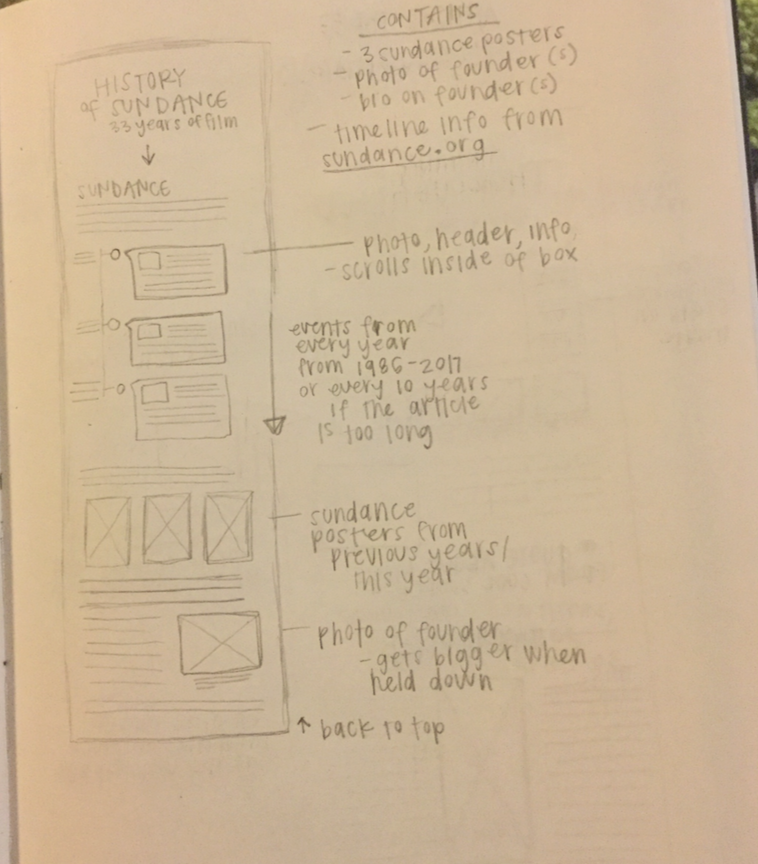 CONTAINS
- 3 sundance posters
- photo of founder(s)
- bio on founder(s)
- timeline info from
sundance.org
HISTORY
of SUNDANCE
33 years of film
↓
SUNDANCE
photo, header, info,
- scrolls inside of box
events from
every year
from 1986-2017
or every 10 years
if the article
is too long
sundance
posters from
previous years/
this year
photo of founder
- gets bigger when
held down
↑ back to top